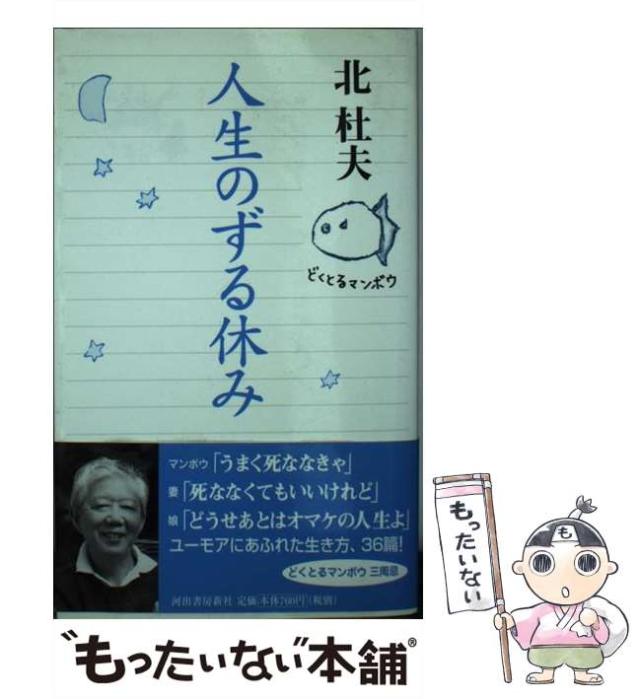 北 杜夫
人生のずる休み
どくとるマンボウ
マンボウ「うまく死ななきゃ」
妻「死ななくてもいいけれど」
娘「どうせあとはオマケの人生よ」
ユーモアにあふれた生き方、36篇!
どくとるマンボウ 三周忌
河出書房新社 定価 本体760円(税別)
“もったいない”本舗®
もったいない
も